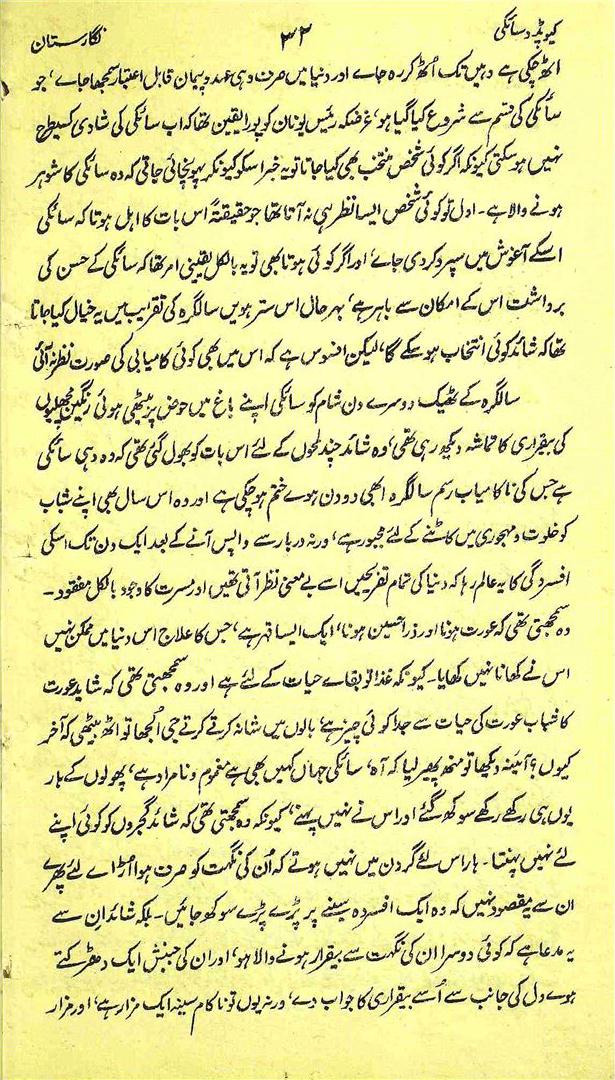 کیوپڈ و سائکی ۳۲ نگارستان
اٹھ چکی ہے وہیں تک اُٹھ کر رہ جاے اور دنیا میں صرف وہی عہد و پیمان قابل اعتبار سمجھا جاے، جو
سائکی کی قسم سے شروع کیا گیا ہو، غرضکہ رئیس یونان کو پورا یقین تھا کہ اب سائکی کی شادی کسیطرح
نہیں ہو سکتی کیونکہ اگر کوئی شخص منتخب بھی کیا جاتا تو یہ خبر اسکو کیونکر پہونچائی جاتی کہ وہ سائکی کا شوہر
ہونے والا ہے۔ اول تو کوئی شخص ایسا نظر ہی نہ آتا تھا جو حقیقتہً اس بات کا اہل ہوتا کہ سائکی
اسکے آغوش میں سپرد کر دی جاے، اور اگر کوئی ہوتا بھی تو یہ بالکل یقینی امر تھا کہ سائکی کے حسن کی
برداشت اس کے امکان سے باہر ہے، بہرحال اس سترہویں سالگرہ کی تقریب میں یہ خیال کیا جاتا
تھا کہ شائد کوئی انتخاب ہو سکے گا، لیکن افسوس ہے کہ اس میں بھی کوئی کامیابی کی صورت نظر نہ آئی
سالگرہ کے ٹھیک دوسرے دن شام کو سائکی اپنے باغ میں حوض پر بیٹھی ہوئی رنگین مچھلیوں
کی بیقراری کا تماشہ دیکھ رہی تھی، وہ شائد چند لمحوں کے لئے اس بات کو بھول گئی تھی کہ وہ وہی سائکی
ہے جس کی ناکامیاب رسم سالگرہ ابھی دو دن ہوے ختم ہو چکی ہے اور وہ اس سال بھی اپنے شباب
کو خلوت و مہجوری میں کاٹنے کے لئے مجبور ہے، ورنہ دربار سے واپس آنے کے بعد ایک دن تک اسکی
افسردگی کا یہ عالم رہا کہ دنیا کی تمام تفریحیں اسے بے معنی نظر آتی تھیں اور مسرت کا وجود بالکل مفقود۔
وہ سمجھتی تھی کہ عورت ہونا اور ذرا حسین ہونا، ایک ایسا قہر ہے، جس کا علاج اس دنیا میں ممکن نہیں
اس نے کھانا نہیں کھایا۔ کیونکہ غذا تو بقاے حیات کے لئے ہے اور وہ سمجھتی تھی کہ شاید عورت
کا شباب عورت کی حیات سے جدا کوئی چیز ہے، بالوں میں شانہ کرتے کرتے جی اُلجھا تو اٹھ بیٹھی کہ آخر
کیوں؟ آئینہ دیکھا تو منھ پھیر لیا کہ آہ، سائکی جہاں کہیں بھی ہے مغموم و نامراد ہے، پھولوں کے ہار
یوں ہی رکھے رکھے سوکھ گئے اور اس نے نہیں پہنے، کیونکہ وہ سمجھتی تھی کہ شائد گجروں کو کوئی اپنے
لئے نہیں پہنتا۔ ہار اس لئے گردن میں نہیں ہوتے کہ اُن کی نگہت کو صرف ہوا اُڑاے لئے پھرے
ان سے یہ مقصود نہیں کہ وہ ایک افسردہ سینے پر پڑے پڑے سوکھ جائیں۔ بلکہ شائد ان سے
یہ مدعا ہے کہ کوئی دوسرا ان کی نگہت سے بیقرار ہونے والا ہو، اور ان کی جنبش ایک دھڑکتے
ہوے دل کی جانب سے اُسے بیقراری کا جواب دے، ورنہ یوں تو ناکام سینہ ایک مزار ہے، اور مزار